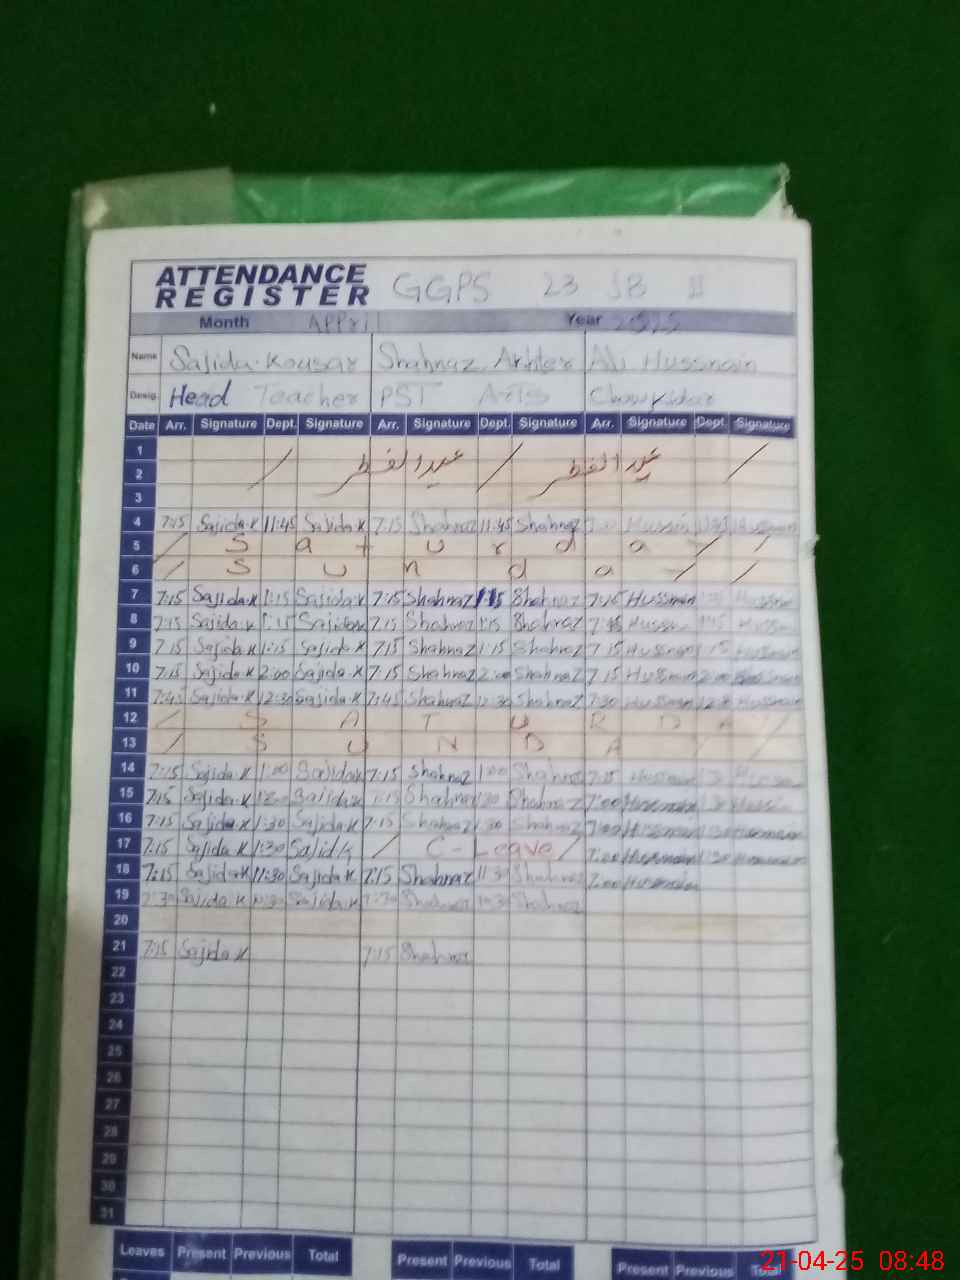 ATTENDANCE REGISTER GGPS 23 JB II
Month APPril Year 2025
Name Sajida Kousar Shahnaz Akhter Ali Hussnain
Desig. Head Teacher PST Arts
Date Arr. Signature Dept. Signature Arr. Signature Dept. Signature Arr. Signature Dept. Signature
1
2 / عید الفطر / عید الفطر /
3
4 7:15 Sajida.K 11:45 Sajida K 7:15 Shahnaz 11:45 Shahnaz
5 / S a t u r d a / /
6 / S u n d a / /
7 7:15 Sajida.K 1:15 Sajida.K 7:15 Shahnaz 1:15 Shahnaz Hussnain
8 7:15 Sajida K 1:15 Sajida K 7:15 Shahnaz 1:15 Shahnaz
9 7 15 Sajida K 1:15 Sajida K 7:15 Shahnaz 1:15 Shahnaz 7 15 Hussnain
10 7:15 Sajida K 2:00 Sajida K 7:15 Shahnaz 2:00 Shahnaz 7.15 Hussnain
11 7:45 Sajida K 12:30 Sajida K 7:45 Shahnaz 12:30 Shahnaz 7:30 Hussnain
12 / S A T U R D A /
13 / S U N D A / /
14 7:15 Sajida K 1:00 Sajida K 7:15 Shahnaz 1:00 Shahnaz 7:15
15 7:15 Sajida K Sajida K 7:15 Shahnaz Shahnaz 7:00
16 7:15 Sajida K 1:30 Sajida K 7:15 Shahnaz 1:30 Shahnaz 7:00
17 7:15 Sajida K 1:30 Sajid K / C-Leave / 7:00
18 7:15 Sajida K 11:30 Sajida K 7:15 Shahnaz 11:30 Shahnaz 7:00
19 7:30 Sajida K 10:30 Sajida K 7:30 Shahnaz 10:30 Shahnaz
20
21 7:15 Sajida K 7:15 Shahnaz
22
23
24
25
26
27
28
29
30
31
Leaves Present Previous Total Present Previous Total Present Previous Total
21-04-25 08:48